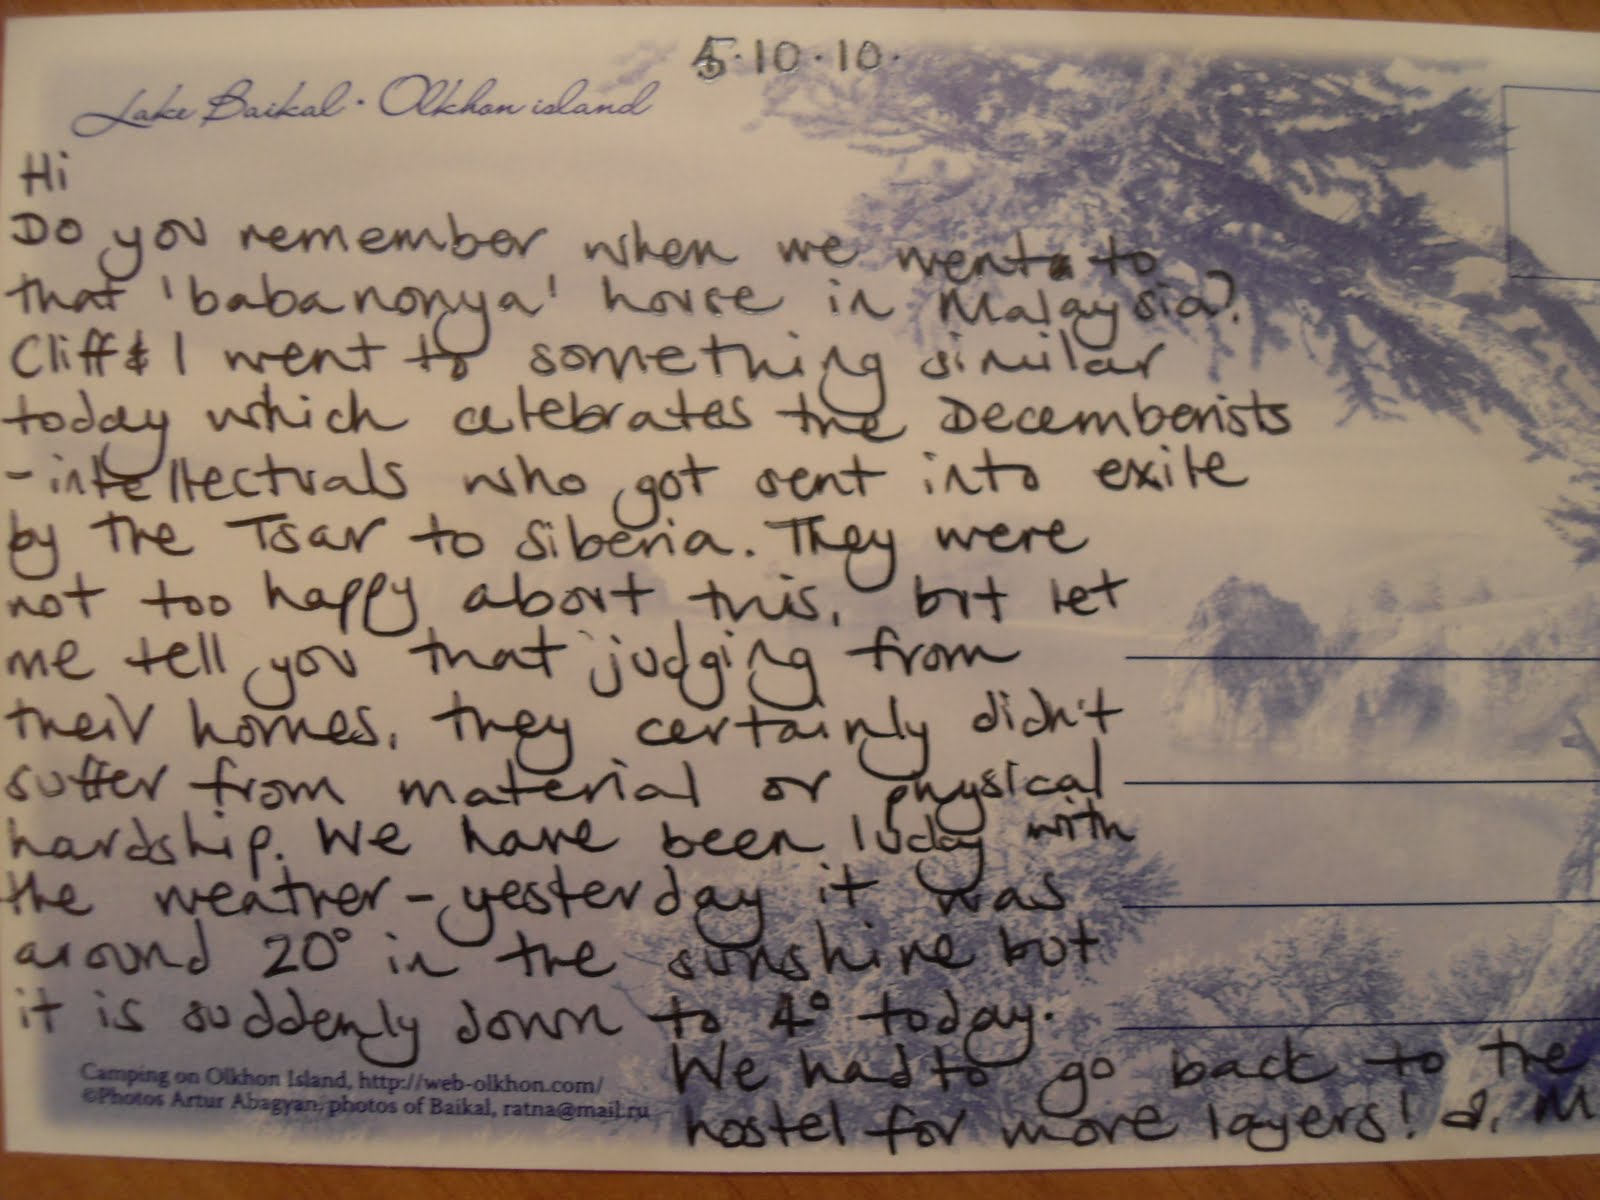 5.10.10.
Lake Baikal • Olkhon island
Hi
Do you remember when we went to
that 'baba nonya' house in Malaysia?
Cliff & I went to something similar
today which celebrates the Decemberists
- intellectuals who got sent into exile
by the Tsar to Siberia. They were
not too happy about this, but let
me tell you that judging from
their homes, they certainly didn't
suffer from material or physical
hardship. We have been lucky with
the weather - yesterday it was
around 20° in the sunshine but
it is suddenly down to 4° today.
We had to go back to the
hostel for more layers! M
Camping on Olkhon Island, http://web-olkhon.com/
©Photos Artur Abagyan, photos of Baikal, ratna@mail.ru